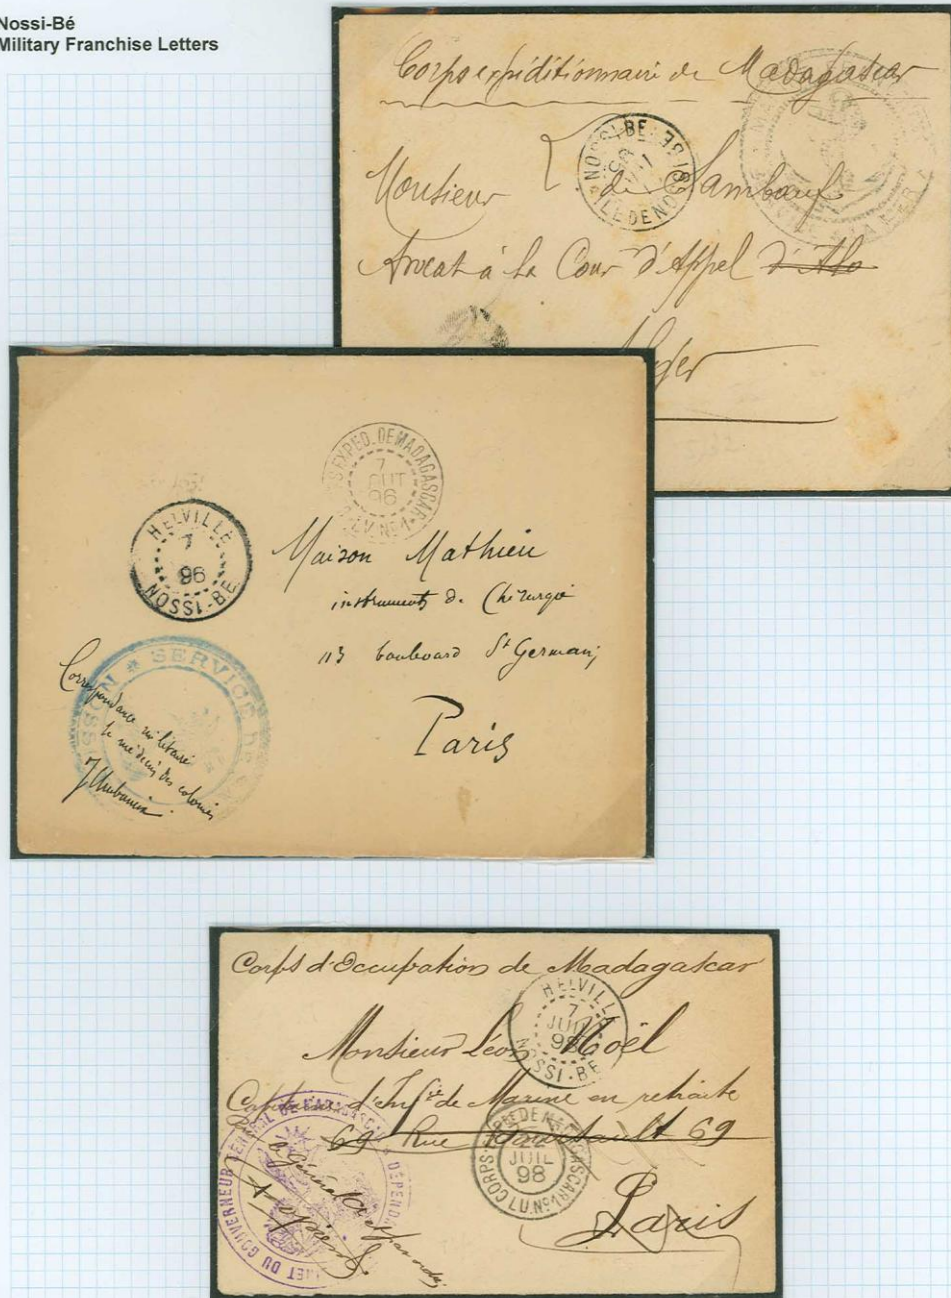 Nossi-Bé
Military Franchise Letters
Corps expéditionnaire de Madagascar
NOSSI-BÉ
ILE DE NOS
Monsieur de
Avocat à la Cour d'Appel
Alger
EXPED. DE MADAGASCAR
7
AUT
96
Nº 1
HELVILLE
7
96
NOSSI-BÉ
Maison Mathieu
instruments de Chirurgie
113 boulevard St Germain,
Paris
SERVICE DE
Correspondance militaire
le médecin des colonies
Corps d'Occupation de Madagascar
HELVILLE
7
JUIL
98
NOSSI-BÉ
Monsieur Léon Noël
Capitaine d'Infie de Marine en retraite
69 Rue 69
JUIL
98
CORPS
Paris
GOUVERNEUR GÉNÉRAL DE MADAGASCAR
le Général